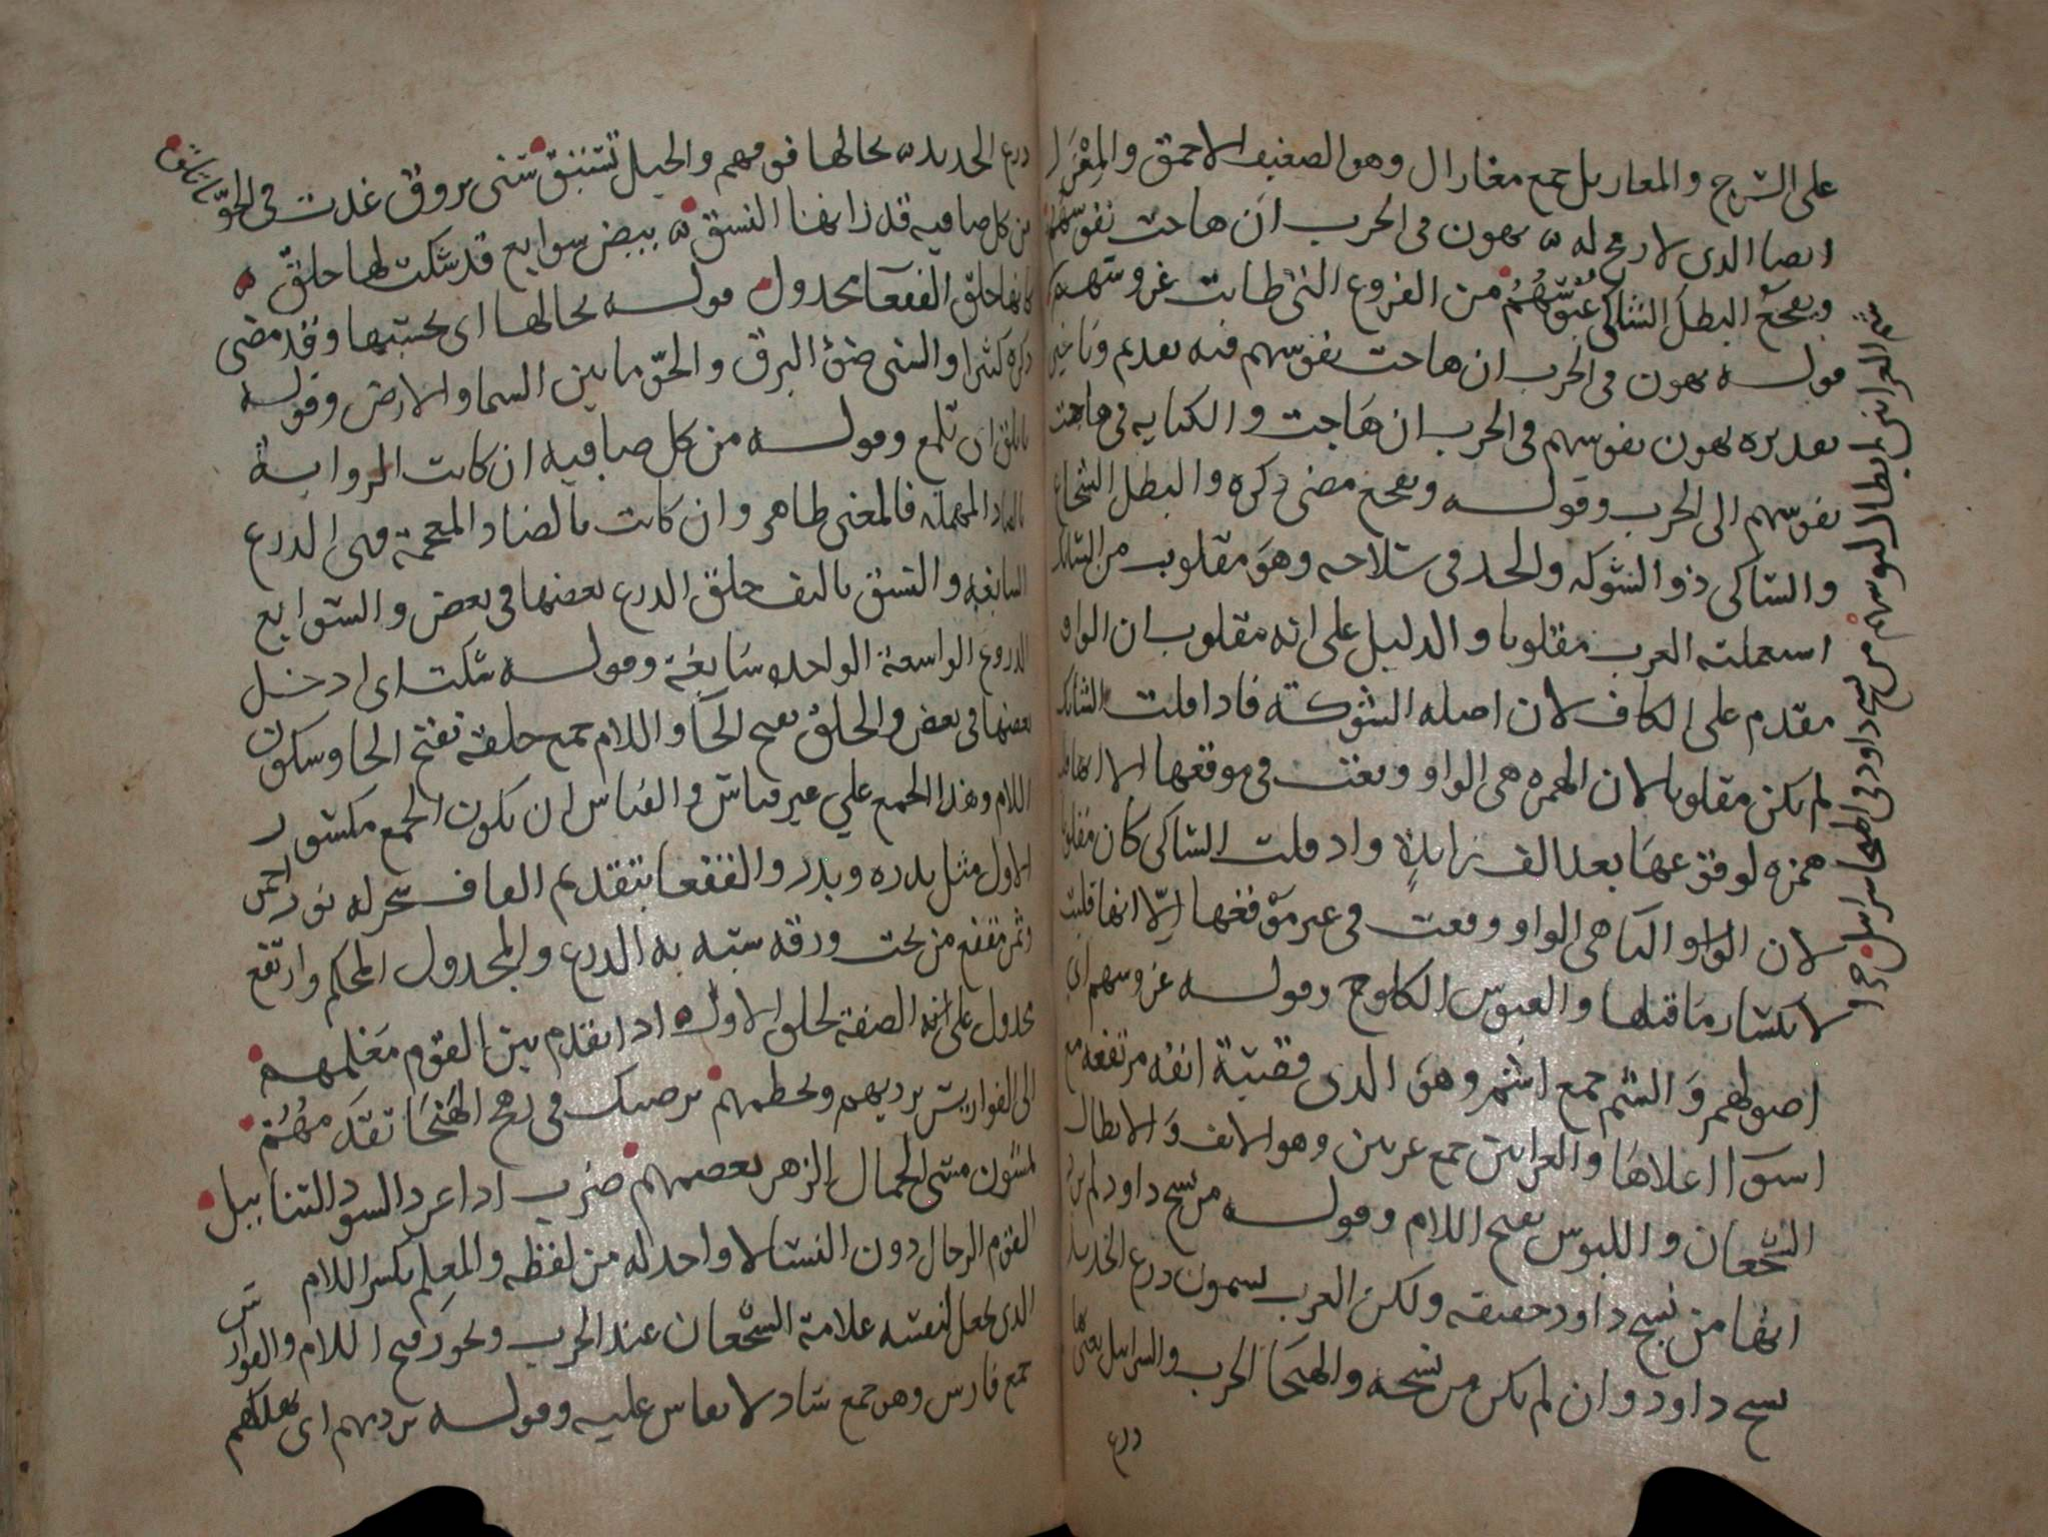 على السرج والمعازيل جمع معزال وهو الضعيف الاحمق والمعزل
ايضا الذي لا رمح له يهون في الحرب ان هاجت نفوسهم
ويفجع البطل الشاكي عبوسهم من الفروع التي طابت غروسهم
قوله يهون في الحرب ان هاجت نفوسهم فيه تقديم وتاخير
تقديره يهون نفوسهم في الحرب ان هاجت والكنايه في هاجت
نفوسهم الى الحرب وقوله ويفجع مضى ذكره والبطل الشجاع
والشاكي ذو الشوكه والحد في سلاحه وهو مقلوب من الشائك
استعملته العرب مقلوبا والدليل على انه مقلوب ان الواو
مقدم على الكاف لان اصله الشوكة فاذا قلت الشائك
لم يكن مقلوبا لان الهمزه هي الواو وقعت في موقعها الا انها
همزه لوقوعها بعد الف زايدة واذ قلت الشاكي كان مقلوبا
لان الواو اليا هي الواو وقعت في غير موقعها الا انها قلبت
لانكسار ما قبلها والعبوس الكلوح وقوله غروسهم اي
اصولهم والشم جمع اشم وهو الذي قصبة انفه مرتفعه مع
استوا اعلاها والعرانين جمع عرنين وهو الانف والابطال
الشجعان واللبوس بفتح اللام وقوله من نسج داود لم يرد
انها من نسج داود حقيقه ولكن العرب يسمون درع الحديد
نسج داود وان لم يكن من نسجه والهيجا الحرب والسرابيل يعني ها
درع
شم العرانين ابطال لبوسهم من نسج داود في الهيجا سرابيل
درع الحديد بحالها فوقهم والخيل تستبق سنى بروق غدت في الجو تاتلق
من كل صافيه قد زانها النسق بيض سوابغ قد شكت لها حلق
كانها حلق القفعا مجدول قوله بحالها اي يحسبها وقد مضى
ذكره كثيرا والسنى ضوء البرق والجو ما بين السما والارض وقوله
تاتلق اي تلمع وقوله من كل صافيه ان كانت الرواية
بالصاد المهمله فالمعنى ظاهر وان كانت بالضاد المعجمة فهي الدرع
السابغه والنسق تاليف حلق الدرع بعضها في بعض والسوابغ
الدروع الواسعة الواحده سابغة وقوله شكت اي ادخل
بعضها في بعض والحلق بفتح الحا واللام جمع حلقة بفتح الحا وسكون
اللام وهذا الجمع علي غير قياس والقياس ان يكون الجمع مكسور
الاول مثل بدره وبدر والقفعا بتقديم القاف شجر له نور احمر
وثمر مقفع من تحت ورقه شبه به الدرع والمجدول المحكم وارتفع
مجدول على انه الصفة لحلق الاول اذا تقدم بين القوم معلمهم
الى الفوارس يرديهم ويحطمهم يرضيك في رهج الهيجا تقدمهم
يمشون مشي الجمال الزهر يعصمهم ضرب اذا عرد السود التنابيل
القوم الرجال دون النسا لا واحد له من لفظه والمعلم بكسر اللام
الذي يجعل لنفسه علامة الشجعان عند الحرب ويجوز فتح اللام والفوارس
جمع فارس وهو جمع شاذ لا يقاس عليه وقوله يرديهم اي يهلكهم